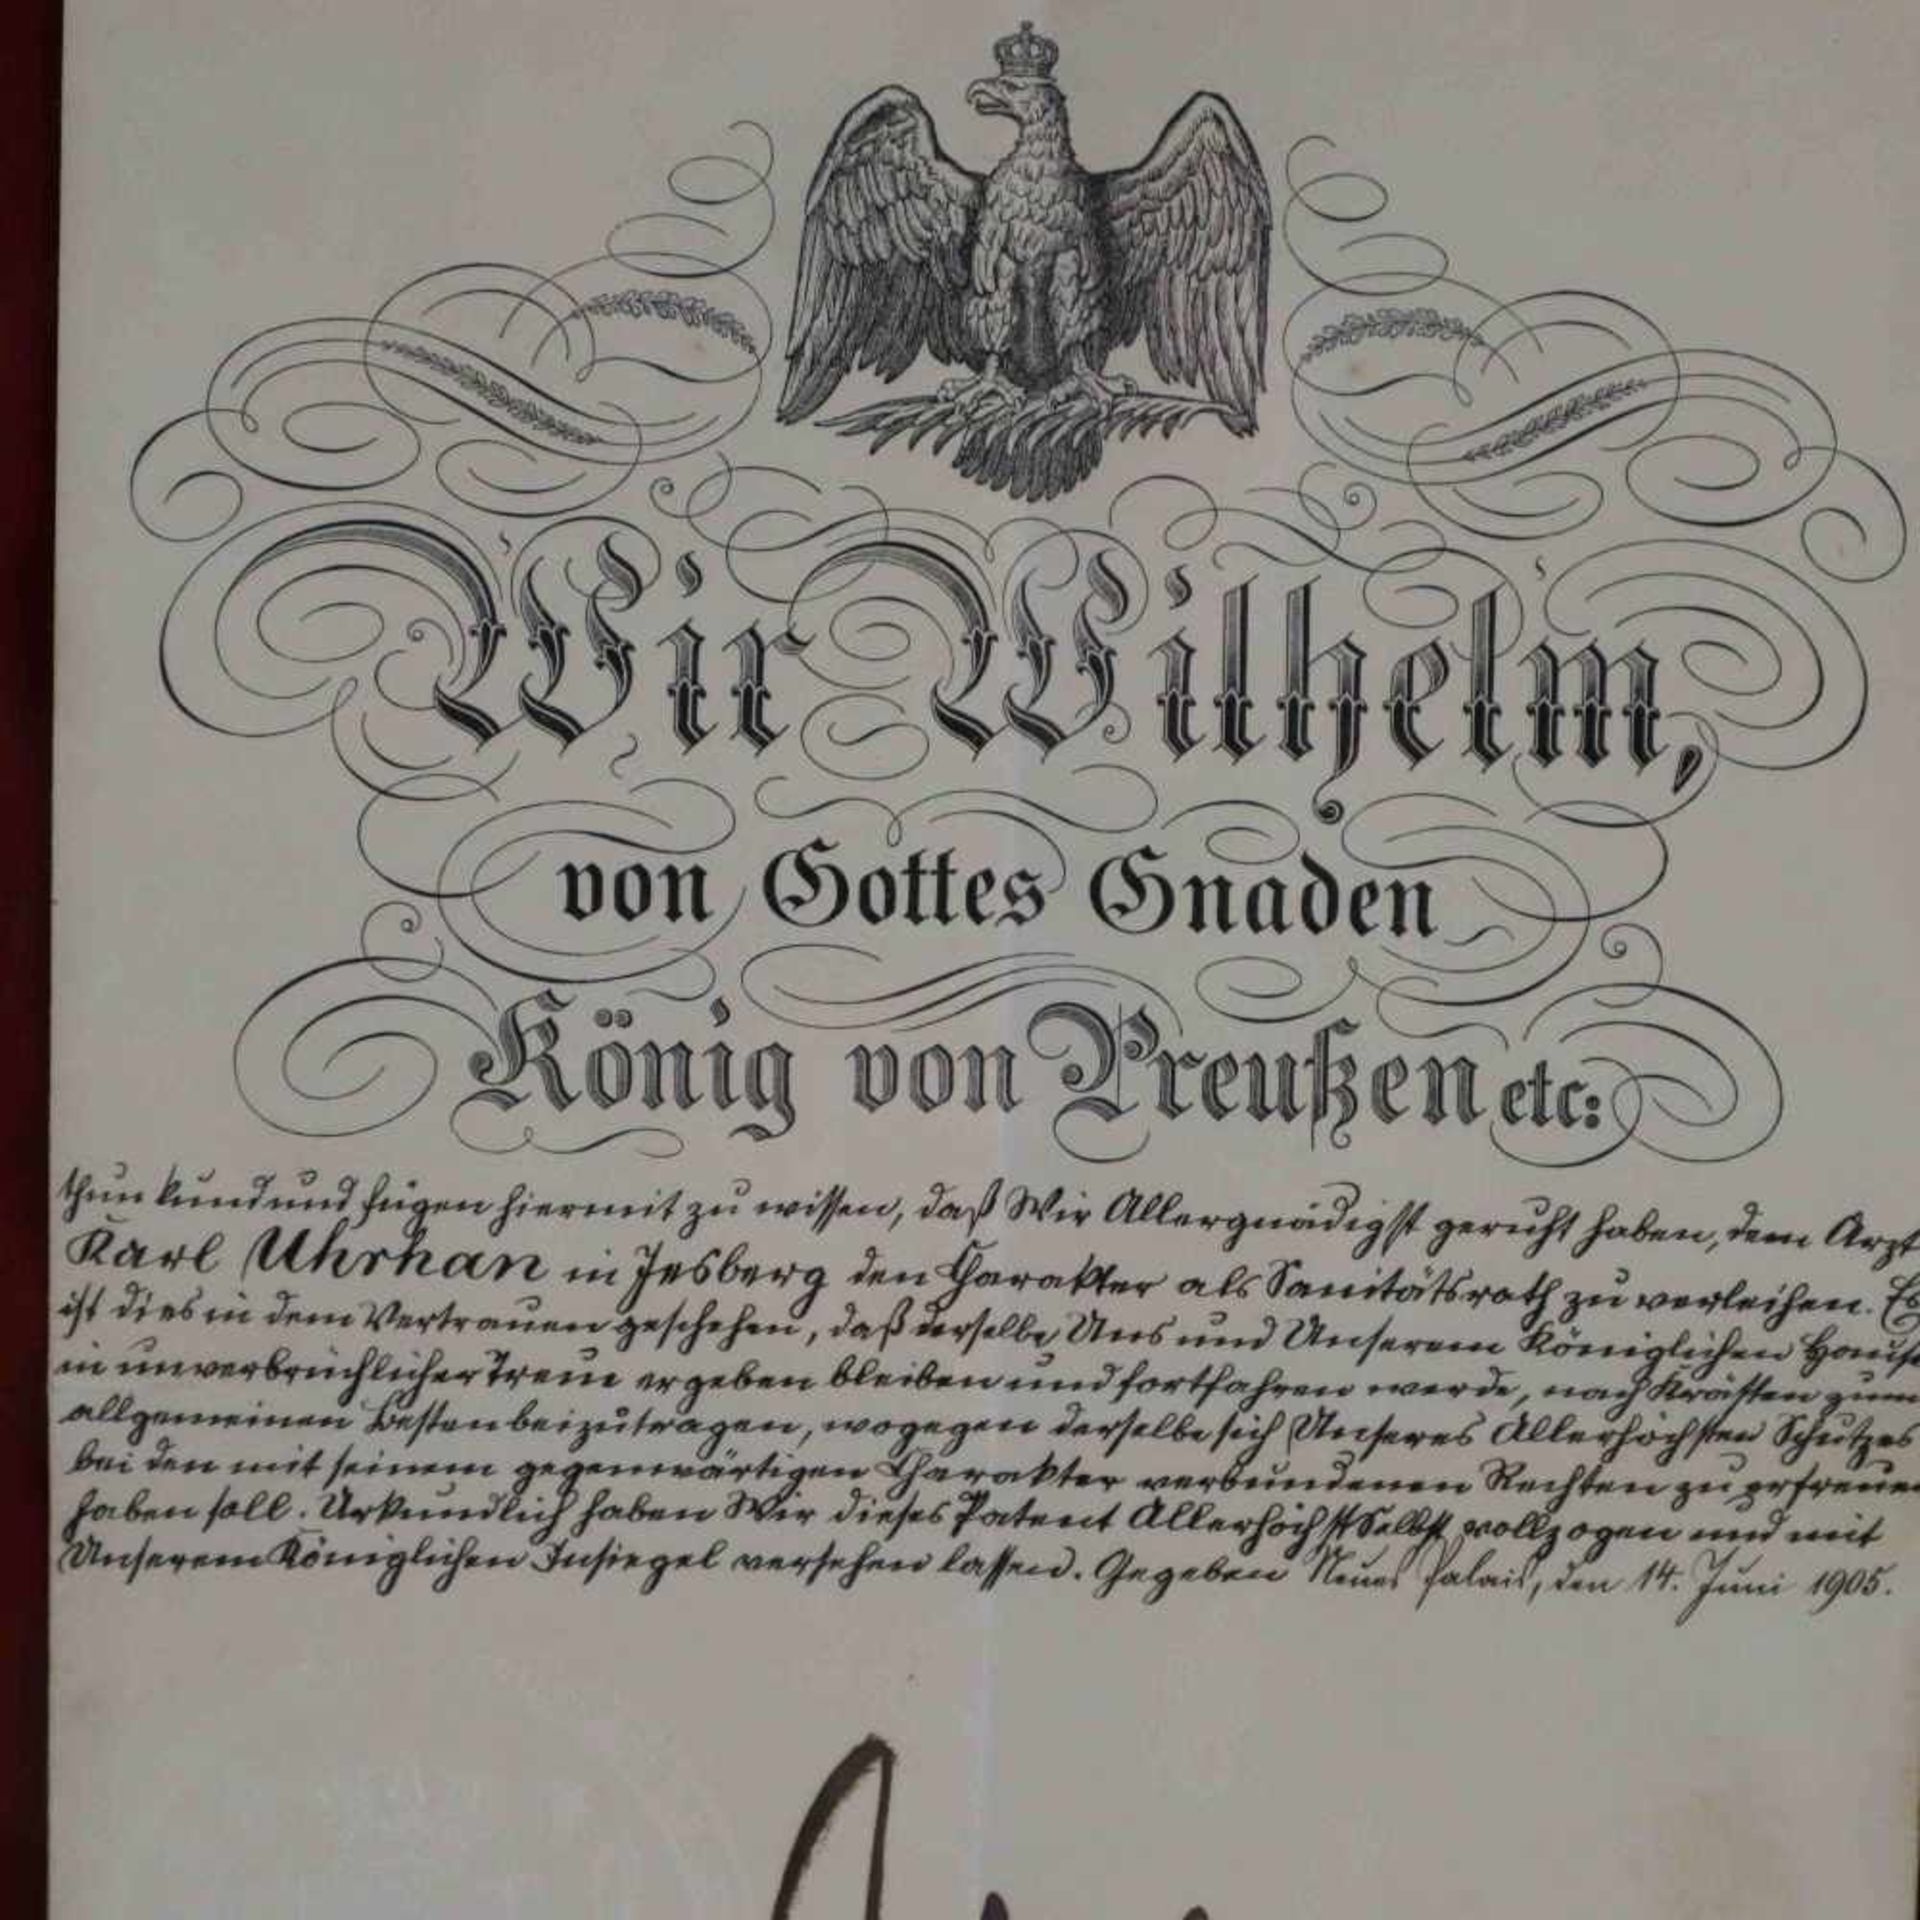 Wir Wilhelm,
von Gottes Gnaden
König von Preußen etc:
thun kund und fügen hiermit zu wissen, daß Wir Allergnädigst geruht haben, dem Arzt
Karl Uhrhan in Jesberg den Charakter als Sanitätsrath zu verleihen. Es
ist dies in dem Vertrauen geschehen, daß derselbe Uns und Unserem Königlichen Hause
in unverbrüchlicher Treue ergeben bleiben und fortfahren werde, nach Kräften zum
allgemeinen Besten beizutragen, wogegen derselbe sich Unseres Allerhöchsten Schutzes
bei den mit seinem gegenwärtigen Charakter verbundenen Rechten zu erfreuen
haben soll. Urkundlich haben Wir dieses Patent AllerhöchstSelbst vollzogen und mit
Unserem Königlichen Insiegel versehen lassen. Gegeben Neues Palais, den 14. Juni 1905.